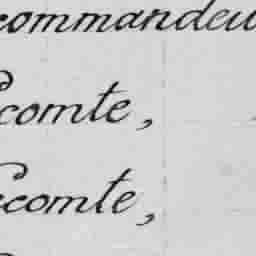 commandeu
comte,
comte,